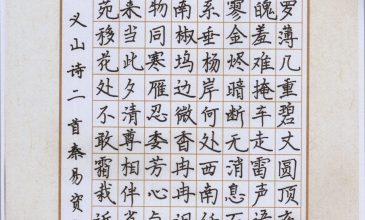 罗薄几重碧文圆顶夜
魄羞难掩车走雷声语
寥金烬暗断无消息石
系垂杨岸何处西南任
南椒坞边微香冉冉泪
物同寒雁忍委芳心与
来当此夕清尊相伴省
苑移花处不敢霜栽近
义山诗二首秦易